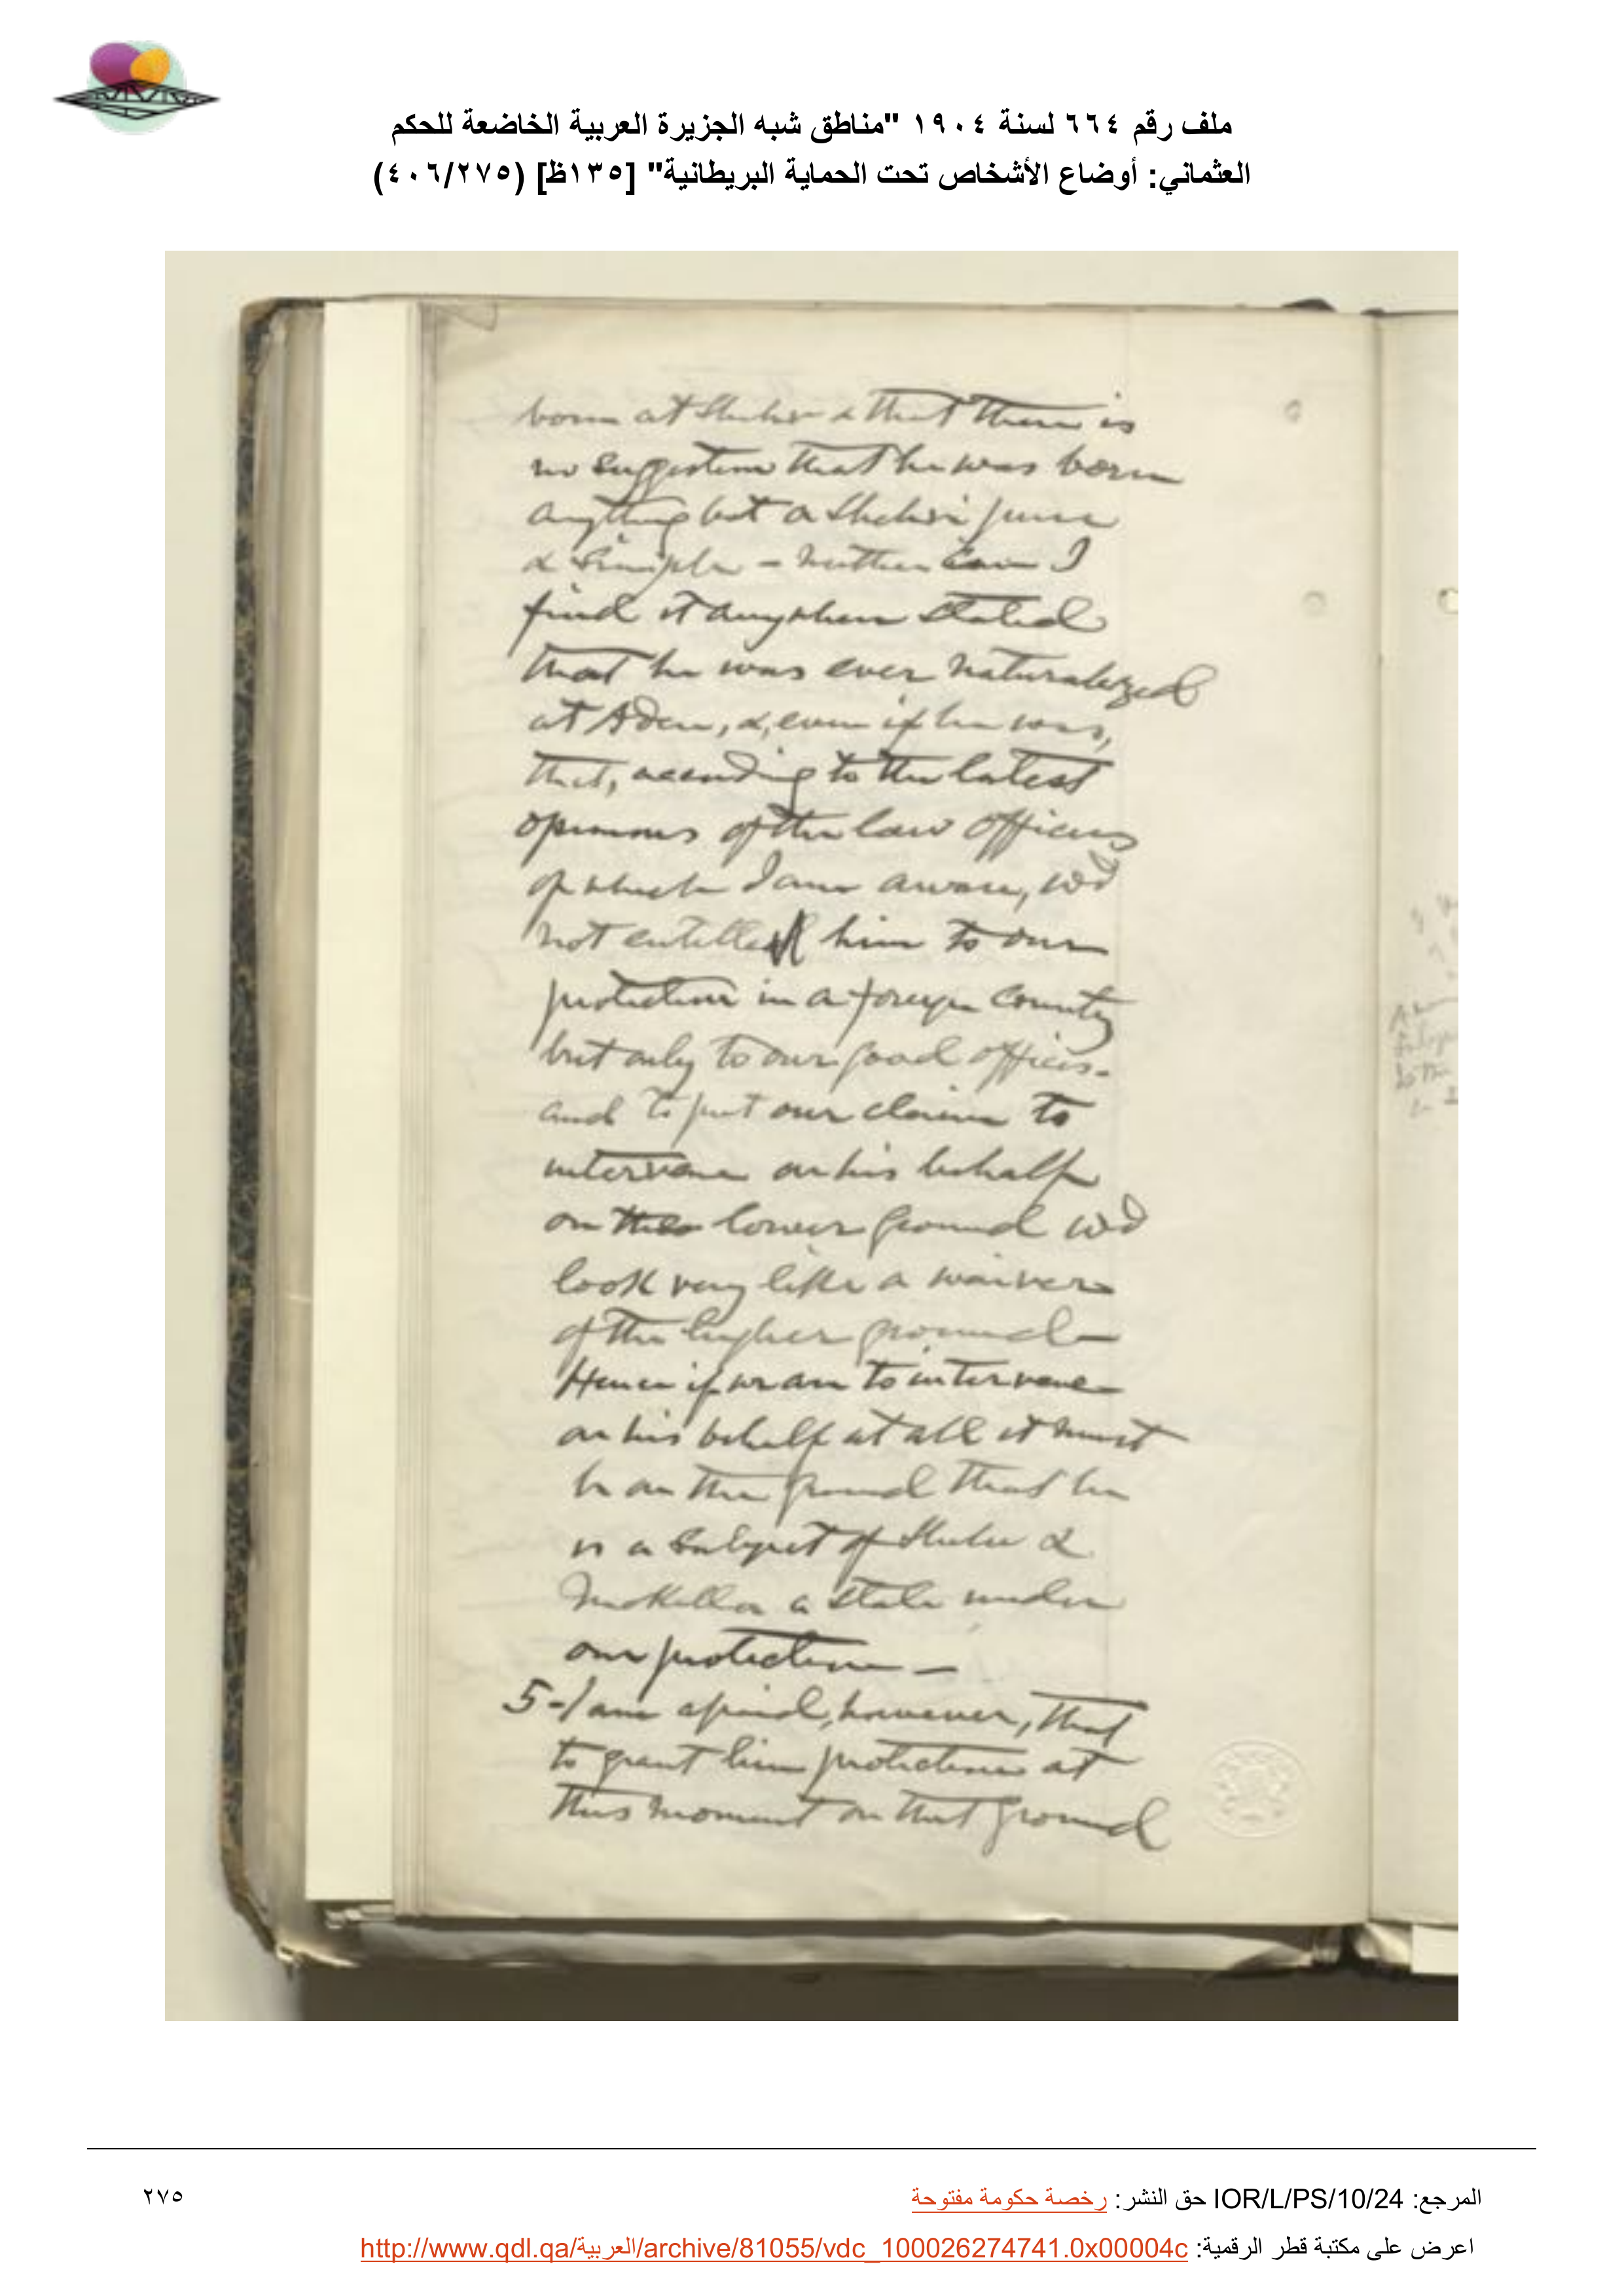 ملف رقم ٦٦٤ لسنة ١٩٠٤ "مناطق شبه الجزيرة العربية الخاضعة للحكم
العثماني: أوضاع الأشخاص تحت الحماية البريطانية" [١٣٥ظ] (٤٠٦/٢٧٥)
born at Shehr & that there is
no suggestion that he was born
anything but a Shehri pure
& simple - neither can I
find it anywhere stated
that he was ever naturalized
at Aden, &, even if he was,
that, according to the latest
opinions of the law officers
of which I am aware, wd
not entitle him to our
protection in a foreign country
but only to our good offices -
and to put our claim to
intervene on his behalf
on this lower ground wd
look very like a waiver
of the higher ground -
Hence if we are to intervene
on his behalf at all it must
be on the ground that he
is a subject of Shehr &
Mokalla a state under
our protection -
5 - I am afraid, however, that
to grant him protection at
this moment on that ground
المرجع: IOR/L/PS/10/24 حق النشر: رخصة حكومة مفتوحة
٢٧٥
اعرض على مكتبة قطر الرقمية: http://www.qdl.qa/العربية/archive/81055/vdc_100026274741.0x00004c